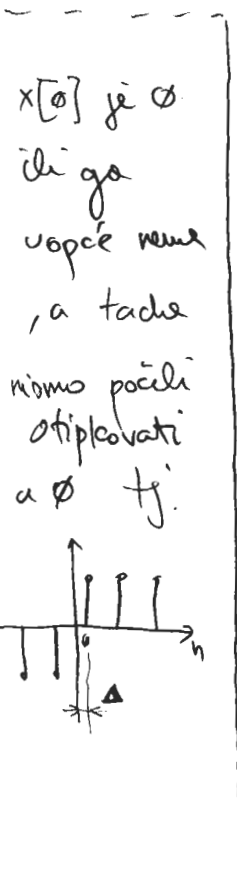 x[ø] je ø
ili ga
uopće nema
, a tada
nismo počeli
otipkovati
u ø tj.
n
Δ